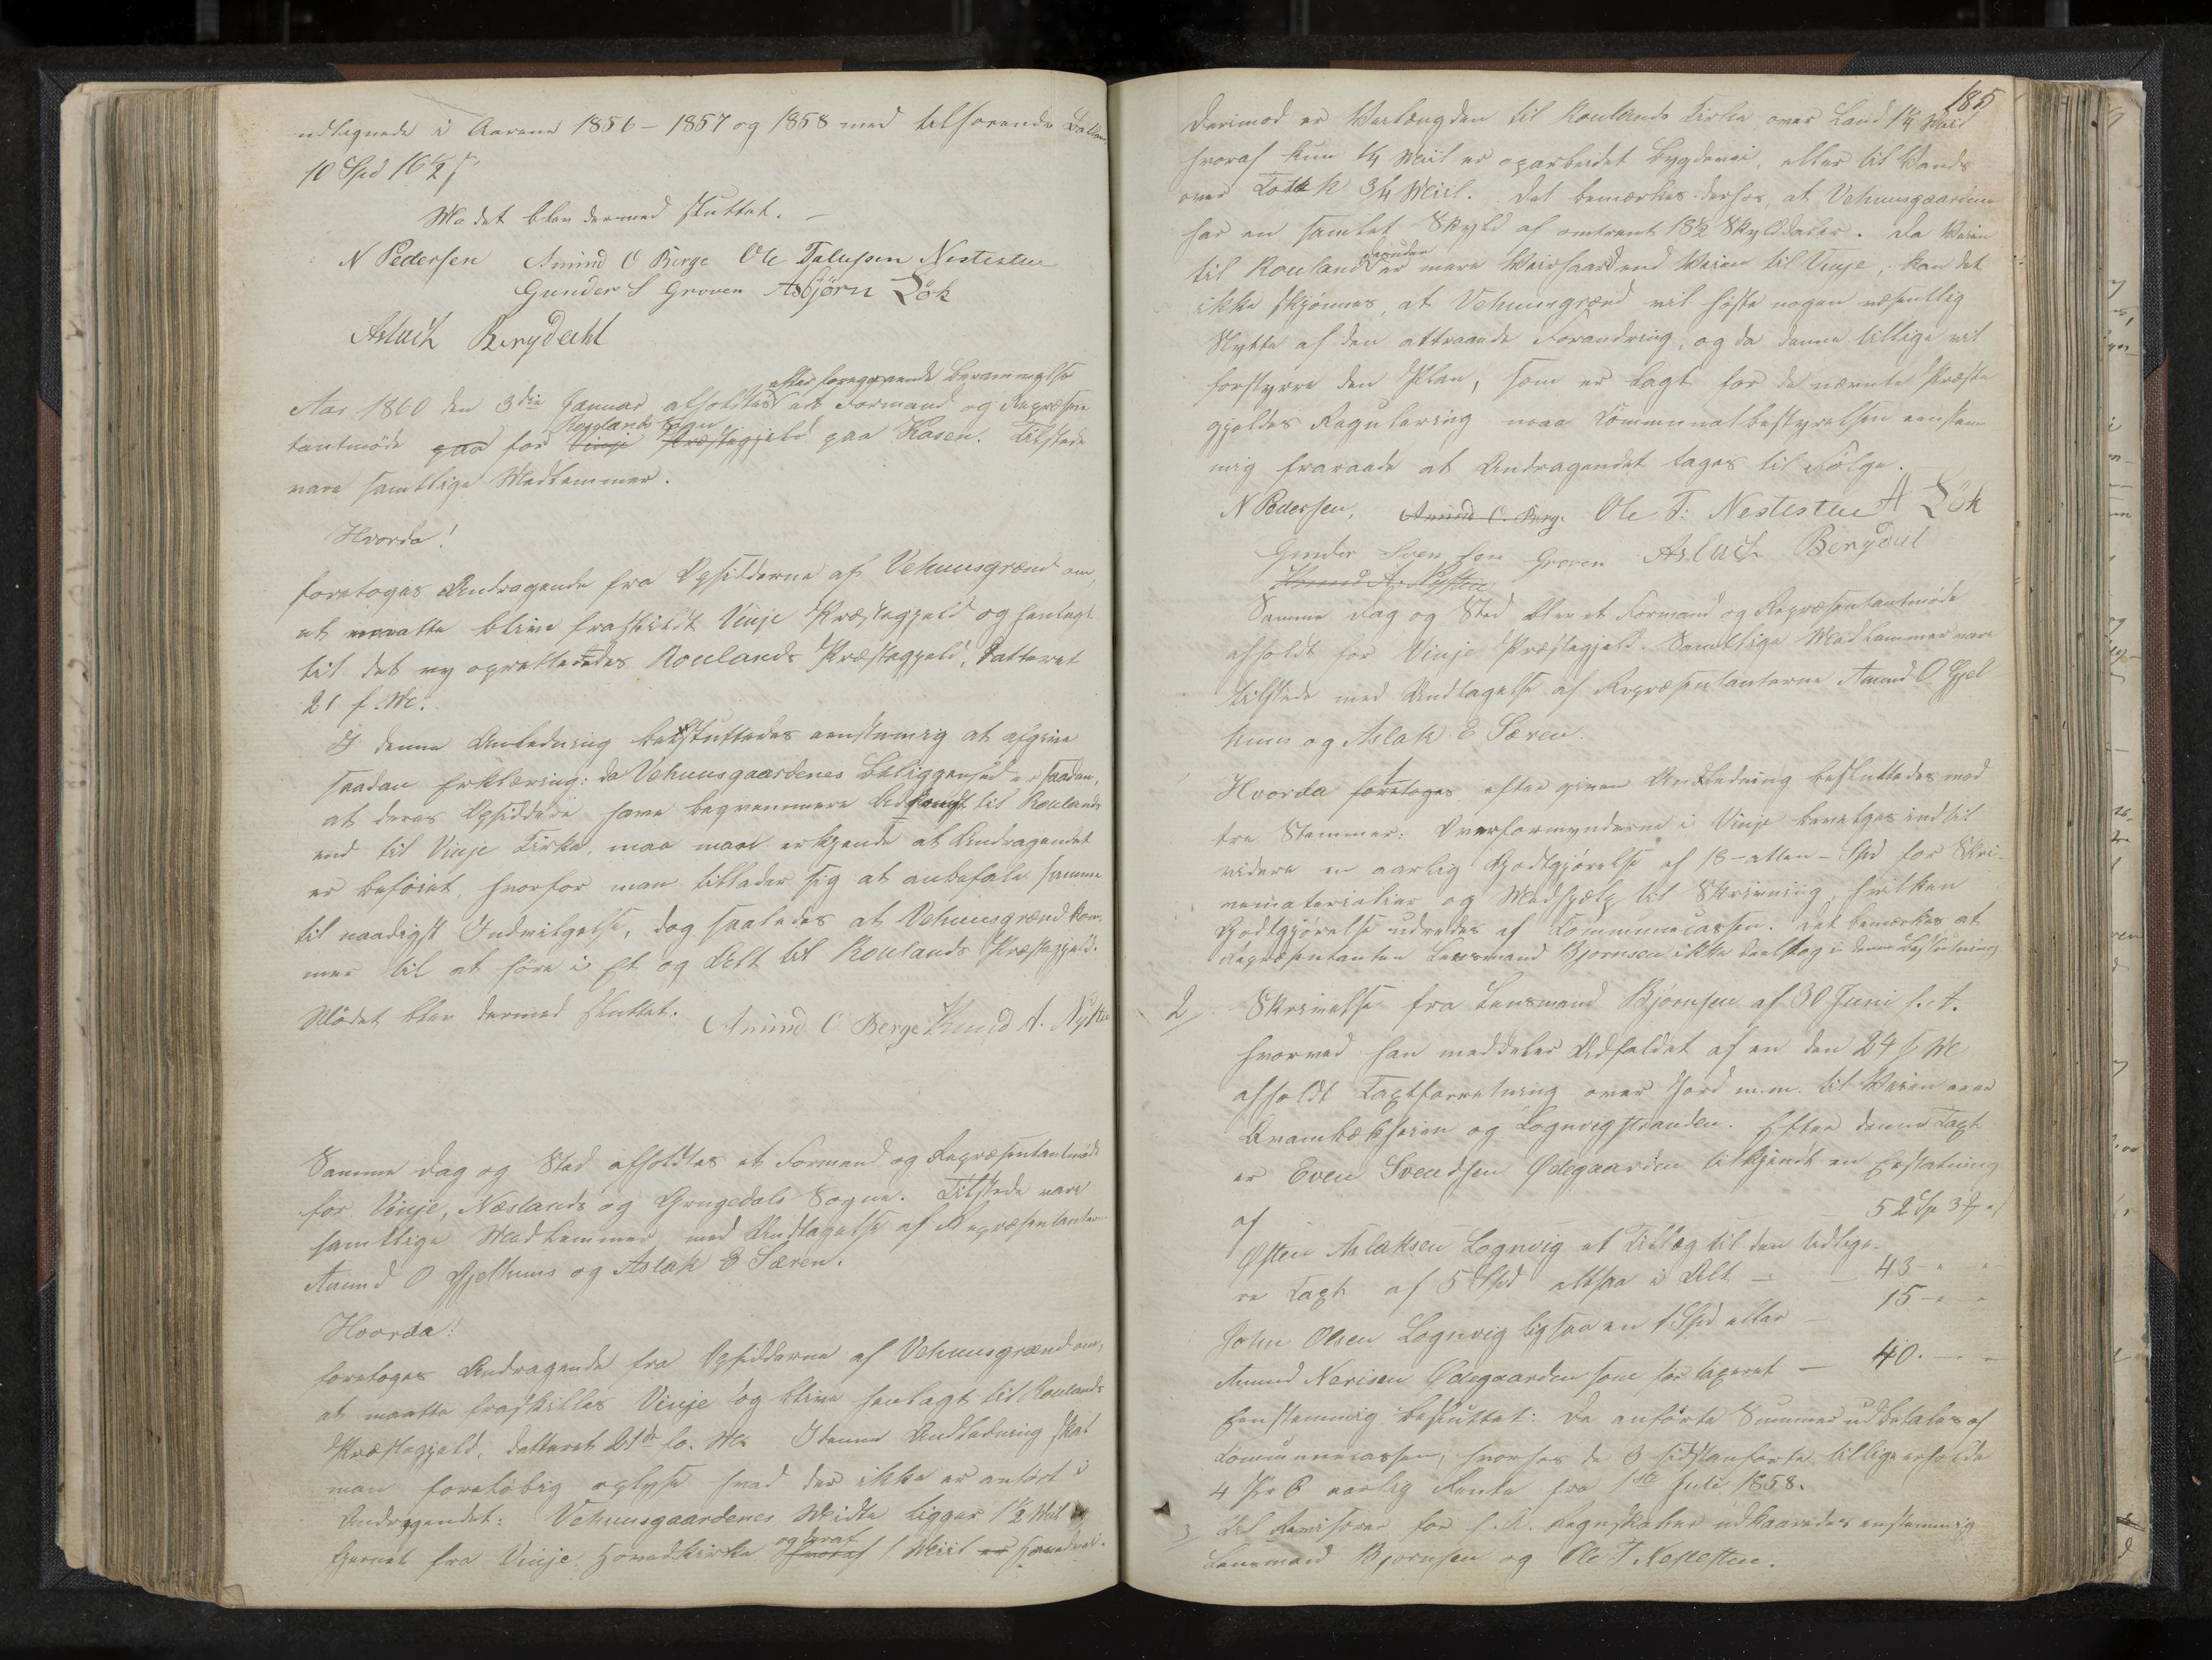 udlignede i Aarene 1856 – 1857 og 1858 med tilhørende
10 Spd 16½ s
Mødet blev dermed sluttet. –
N Pedersen Amund O Berge Ole Talefsen Nestesten
Gunder S Groven Asbjørn Lök
Aslach Berydahl
Aar 1860 den 3die Januar afholdtes efter foregaaende Berammelse et Formand og Repræsen
tantmøde paa for Vinje Præstegjeld Roulands Sogn paa Kosen. Tilstede
vare samtlige Medlemmer.
Hvorda!
foretoges Andragende fra Opsidderne af Vehuusgrænd om,
at maatte blive fraskildt Vinje Præstegjeld og henlagt
til det ny oprettendes Roulands Præstegjeld, datteret
21 f. M.
I denne Anledning besluttedes eenstemig at afgive
saadan Erklæring: da Vehuusgaardenes Beliggenhed er saadan,
at deres Opsiddere have beqvemmere Adkomst til Roulands
end til Vinje Kirke, maa man erkjende at Andragendet
er beføiet, hvorfor man tillader sig at anbefale samme
til naadigst Indvilgelse, dog saaledes at Vehuusgrænd kom-
mer til at høre i Et og Alt til Roulands Præstegjeld.
Mødet blev dermed sluttet. Amund O Berge Knud A. Nysten
Samme Dag og Sted afholdtes et Formand og Repræsentantmøde
for Vinje, Næslands og Grungedals Sogne. Tilstede vare
samtlige Medlemmer med Undtagelse af Repræsentanterne
Amund O Gjelhuus og Aslak E Særen.
Hvorda!
foretoges Andragende fra Opsidderne af Vehuusgrænd om,
at maatte fraskilles Vinje og blive henlagt til Roulands
Præstegjeld, datteret 21de f. M. I denne Anledning skal
man foreløbig oplyse hvad der ikke er anført i
Andragendet: Vehuusgaardenes Midte ligger 1½ Miil
fjernet fra Vinje Hovedkirke hvoraf og deraf 1 Miil er Hovedvei.
185
Derimod er Veilængden til Roulands Kirke over Land 1¼ Miil
hvoraf kun ¼ Miil er oparbeidet Bygdevei, eller til Vands
over Totak 3/4 Miil. Det bemærkes derhos, at Vehuusgaardene
har en samlet Skyld af omtrent 18½ Skylddaler. Da Veien
til Rouland desuden er mere Veirhaard end Veien til Vinje, kan det
ikke skjønnes, at Vehuusgrænd vil høste nogen væsentlig
Nytte af den attraaede Forandring, og da denne tillige vil
forstyrre den Plan, som er lagt for de nævnte Præste
gjeldes Regulering maa Communalbestyrelsen eenstem
mig fraraade at Andragendet tages til Følge.
N Pedersen, Amund O. Berg. Ole T: Nestesten A Lök
Gunder Svensen Groven Aslach Berydal
Knud A. Nysten
Samme Dag og Sted blev et Formand og Repræsentantmøde
afholdt for Vinje Præstegjeld. Samtlige Medlemmer vare
tilstede med Undtagelse af Repræsentanterne Amund O Gjel
huus og Aslak E Særen.
Hvorda foretoges 1 efter given Anledning besluttedes mod
tre Stemmer: Overformynderne i Vinje bevilges indtil
videre en aarlig Godtgjørelse af 18 – atten – Spd for Skri-
vematerialier og Medhjælp til Skrivning, hvilken
Godtgjørelse udredes af Communecassen. Det bemærkes at
Repræsentanten Lensmand Bjørnsen ikke deeltog i denne Beslutning
2/ Skrivelse fra Lensmand Bjørnsen af 30 Juni f. A.
hvorved han meddeler Udfaldet af en den 24 s M
afholdt Taxtforretning over Jord m.m. til Veien over
og Lognvigstranden. Efter denne Taxt
er Even Svendsen Ødegaarden tilkjendt en Erstatning
af – – – 52 Sp 3 – "
Østen Aslaksen Lognvig et Tillæg til den tidlige-
re Taxt af 5 Spd altsaa i Alt – – 43 – " –
John Olsen Lognvig ligesaa en 1 Spd eller – 15 – " –
Amund Nerisen Ødegaarden som før taxeret – 40. – " –
Eenstemmig besluttet: De anførte Summer udbetales af
Communecassen, hvorhos de 3 sidstanførte tillige erholde
4 Pr C aarlig Rente fra 1ste Juli 1858.
3/ Til Revisorer for f. A. Regnskaber udkaaredes enstemmig
Lensmand Bjørnsen og Ole T Nestesten.